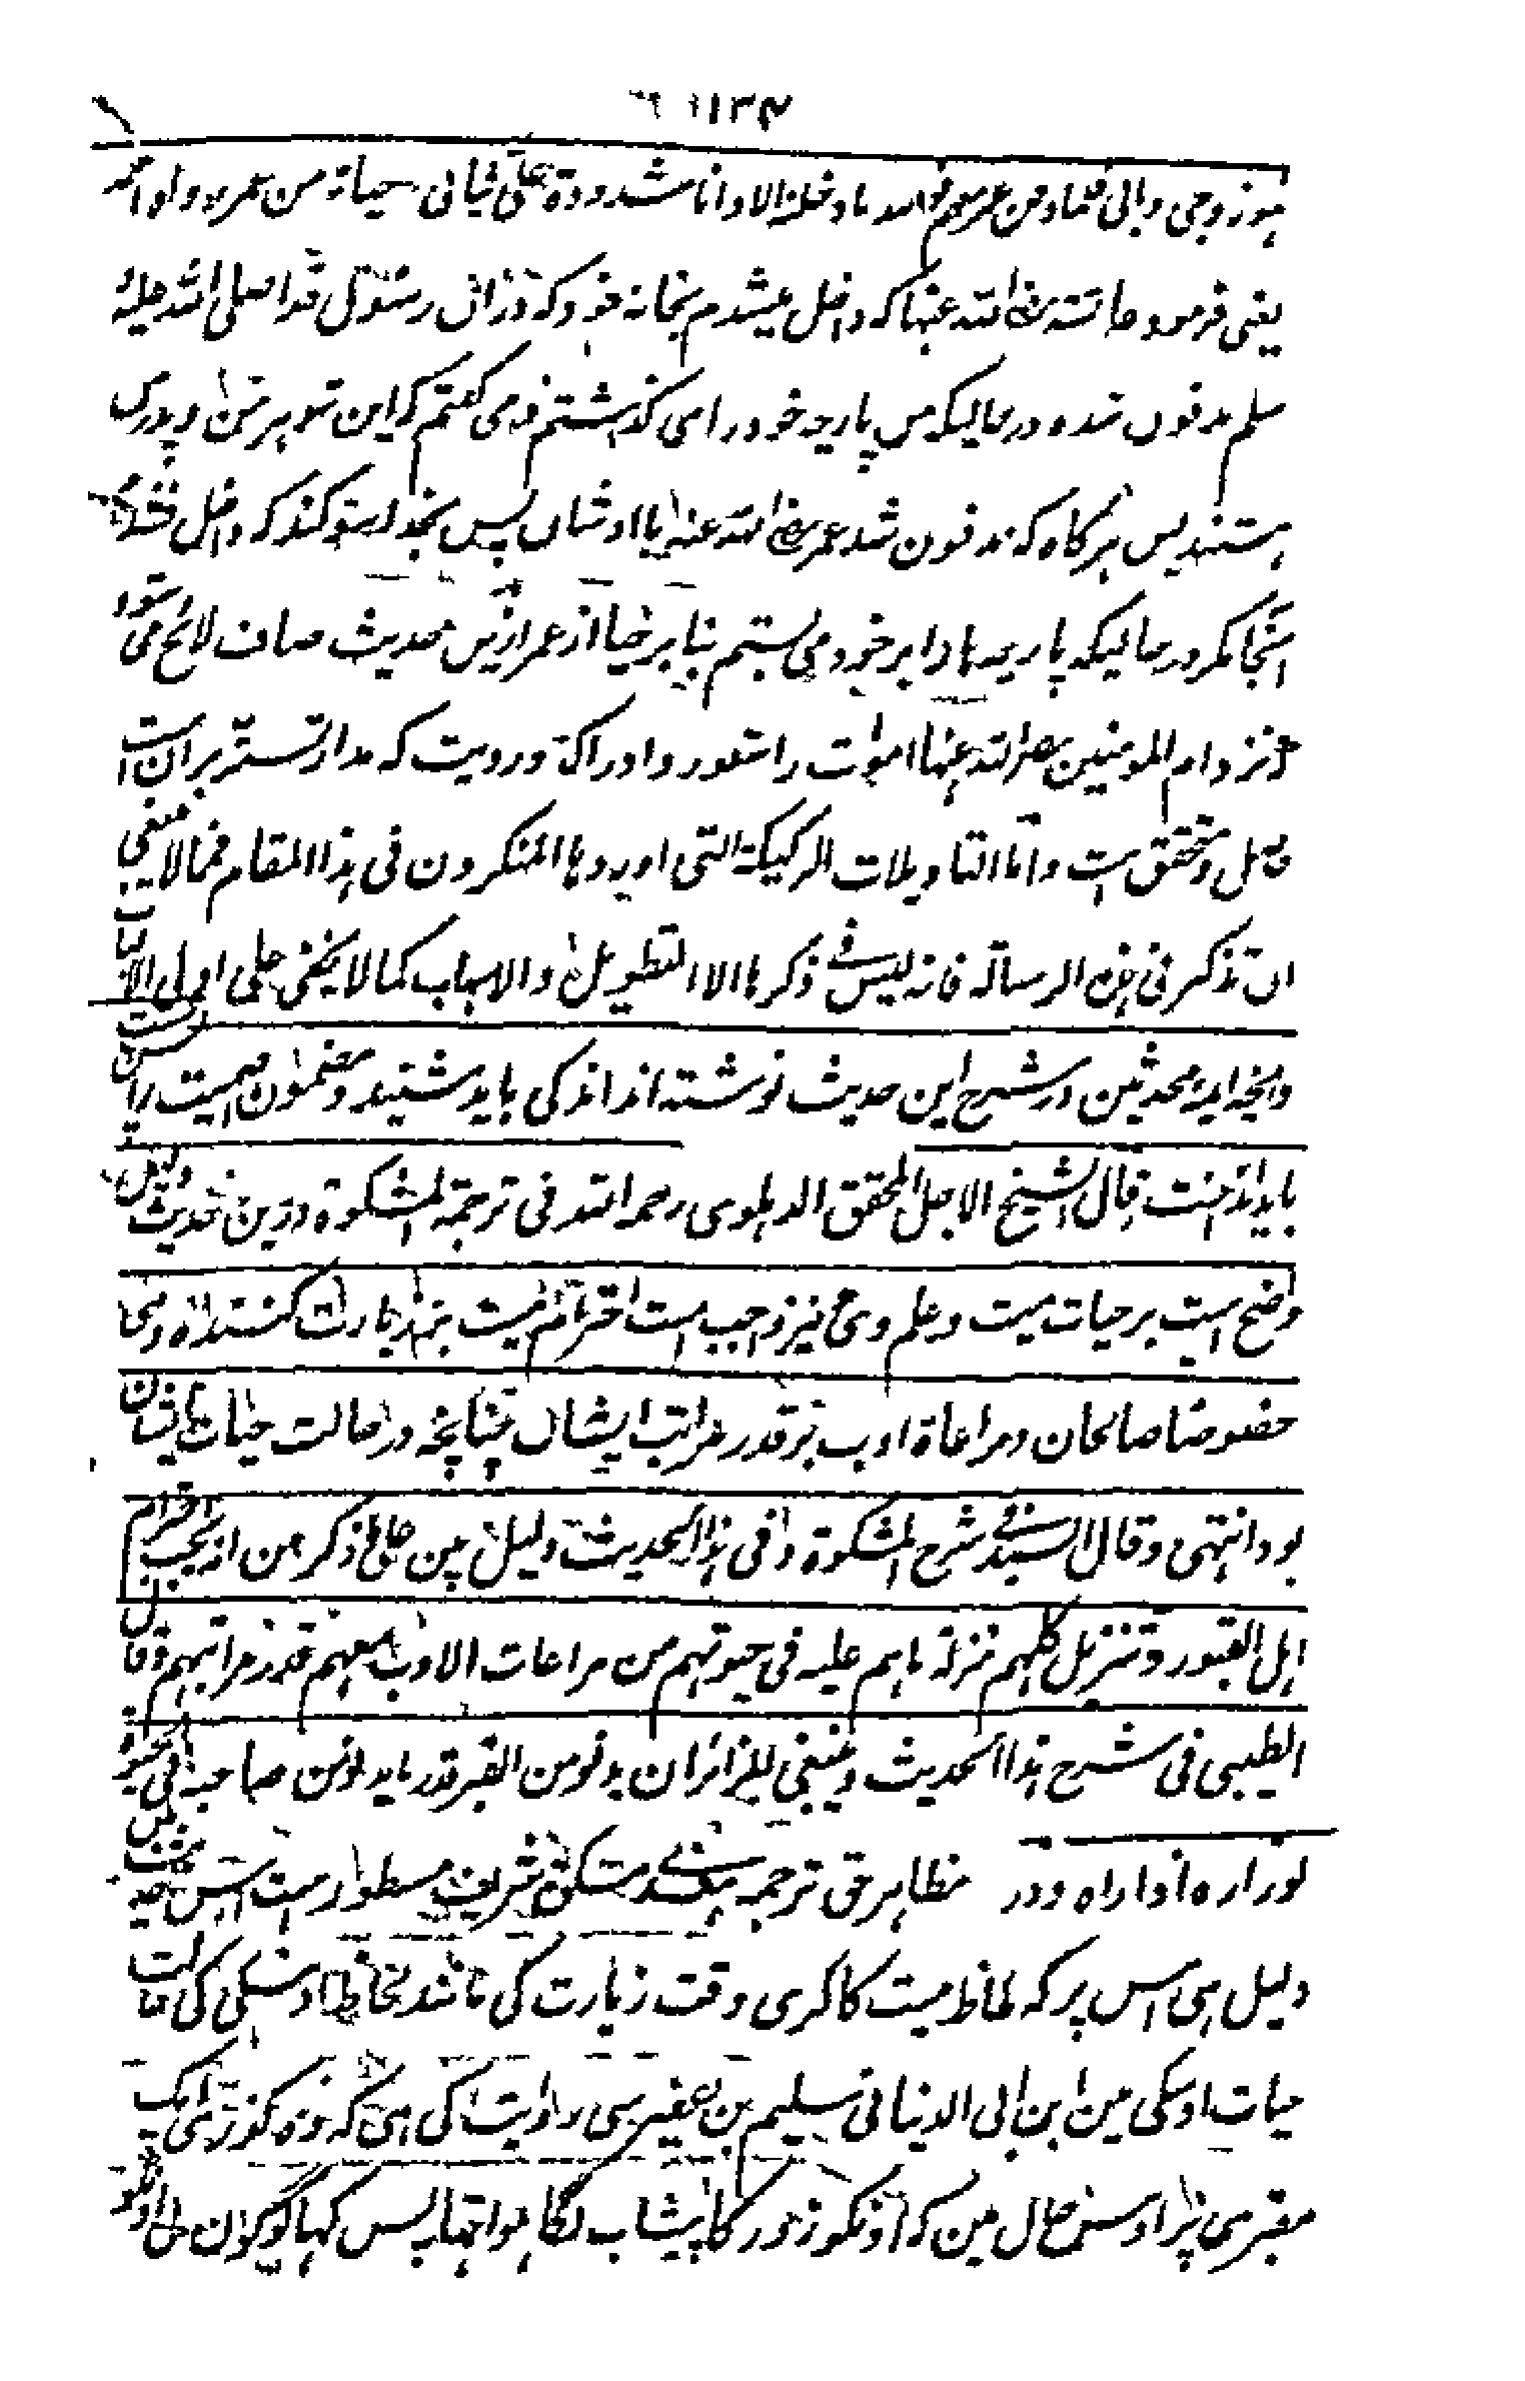 ۱۱۳۴
هو زوجی و ابی فلما دفن عمر معهم فوالله ما دخلته الا وانا مشدودة علی ثیابی حیاء من عمر رواه احمد
یعنی فرمود عائشه رضی الله عنها که داخل میشدم بخانه خود که در آن رسول خدا صلی الله علیه
سلم مدفون شده در حالیکه من پارچه خود را می گذاشتم و می گفتم که این شوهر من و پدر من
هستند پس هرگاه که مدفون شد عمر رضی الله عنه با اوشان پس بخدا سوگند که داخل نشدم
آنجا مگر در حالیکه پارچه ها را بر خود می بستم بنا بر حیا از عمر ازین حدیث صاف لائح می شود
که نزد ام المومنین رضی الله عنها اموات را شعور و ادراک و رویت که مدار تستر بر آن است
حاصل و متحقق است و اما التاویلات الرکیکة التی اوردوها المنکرون فی هذا المقام فمما لا ینبغی
ان تذکر فی هذه الرسالة فانه لیس فی ذکرها الا التطویل و الاسهاب کما لا یخفی علی اولی الالباب
و آنچه ائمه محدثین در شرح این حدیث نوشته اند اندکی باید شنید و مضمون
باید انداخت قال الشیخ الاجل المحقق الدهلوی رحمه الله فی ترجمة المشکوة درین حدیث دلیل
واضح است بر حیات میت و علم وی و نیز واجب است احترام میت نزد زیارت کننده وی
خصوصا صالحان و مراعاة ادب بر قدر مراتب ایشان چنانچه در حالت حیات ایشان
بود انتهی و قال السید فی شرح المشکوة و فی هذا الحدیث دلیل بین علی ما ذکر من انه یجب احترام
اهل القبور و تنزیل کلهم منزلة ما هم علیه فی حیوتهم من مراعات الادب معهم قدر مراتبهم و قال
الطیبی فی شرح هذا الحدیث و ینبغی للزائر ان یدنو من القبر قدر ما یدنو من صاحبه فی الحیوة
لو زاره و در مظاهر حق ترجمه هندی مشکوة شریف مسطور است اس حدیث مین
دلیل هی اس پر که لحاظ میت کا کری وقت زیارت کی مانند لحاظ اوسکی کی حالت
حیات اوسکی مین ابن ابی الدنیا نی سلیم بن عفیر سی روایت کی هی که وه گذری ایک
مقبری پر اوس حال مین که اونکو زور کا پیشاب لگا هوا تها پس کها لوگون نی اونکو